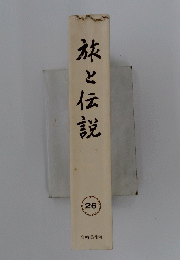 旅と伝説
26